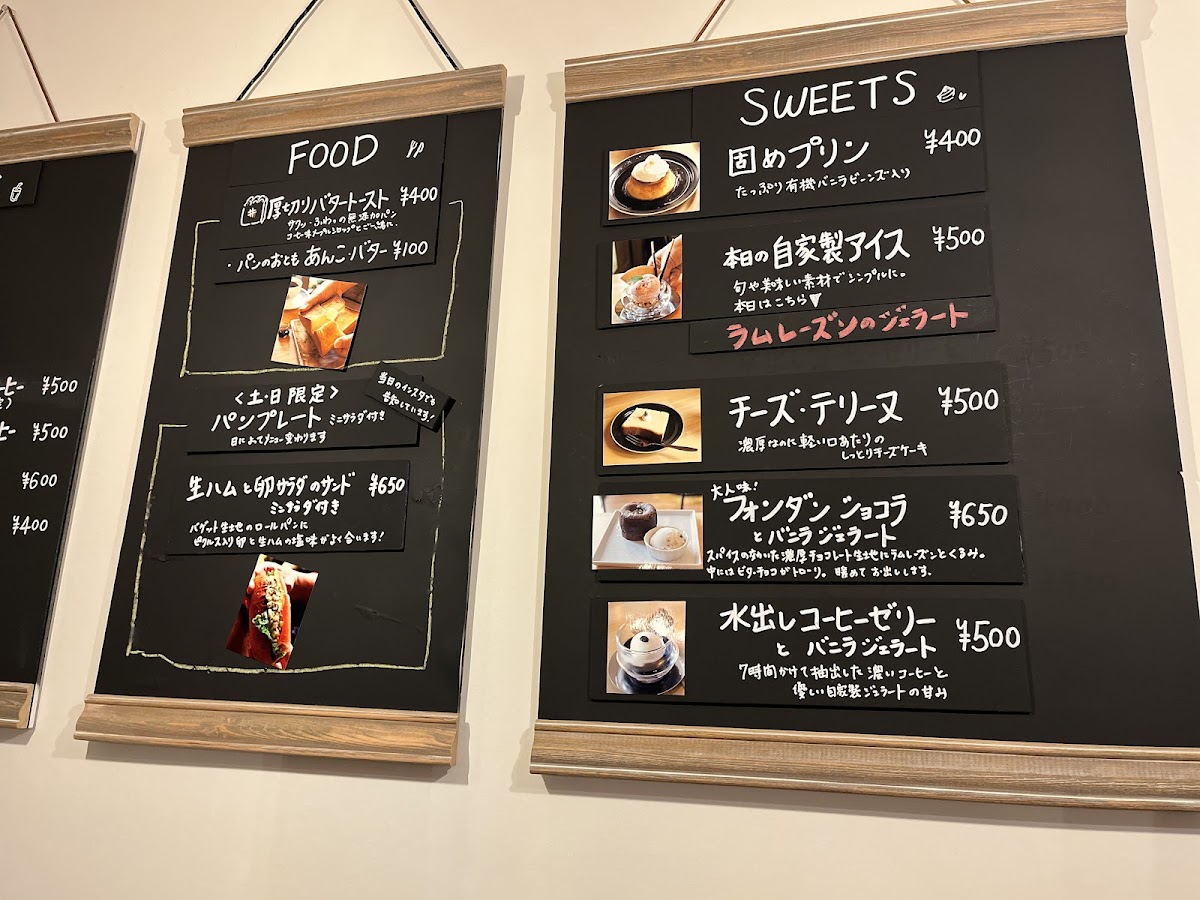 ーヒー ¥500
ヒー ¥500
¥600
¥400
FOOD
厚切りバタートースト ¥400
サクッ・ふわっの無添加パン
コーヒー味メープルシロップとご一緒に.
・パンのおとも あんこ・バター ¥100
<土・日 限定>
パンプレート ミニサラダ付き
日によってメニュー変わります
当日のインスタでも
お知らしています!
生ハムと卵サラダのサンド ¥650
ミニサラダ付き
バゲット生地のロールパンに
ピクルス入り卵と生ハムの塩味がよく合います!
SWEETS
固めプリン ¥400
たっぷり有機バニラビーンズ入り
本日の自家製アイス ¥500
旬や美味しい素材でシンプルに。
本日はこちら▼
ラムレーズンのジェラート
チーズ・テリーヌ ¥500
濃厚なのに軽い口あたりの
しっとりチーズケーキ
大人味!
フォンダン ショコラ ¥650
と バニラジェラート
スパイスのきいた濃厚チョコレート生地にラムレーズンとくるみ。
中にはビターチョコがトローリ。温めてお出しします.
水出しコーヒーゼリー ¥500
と バニラジェラート
7時間かけて抽出した濃いコーヒーと
優しい自家製ジェラートの甘み